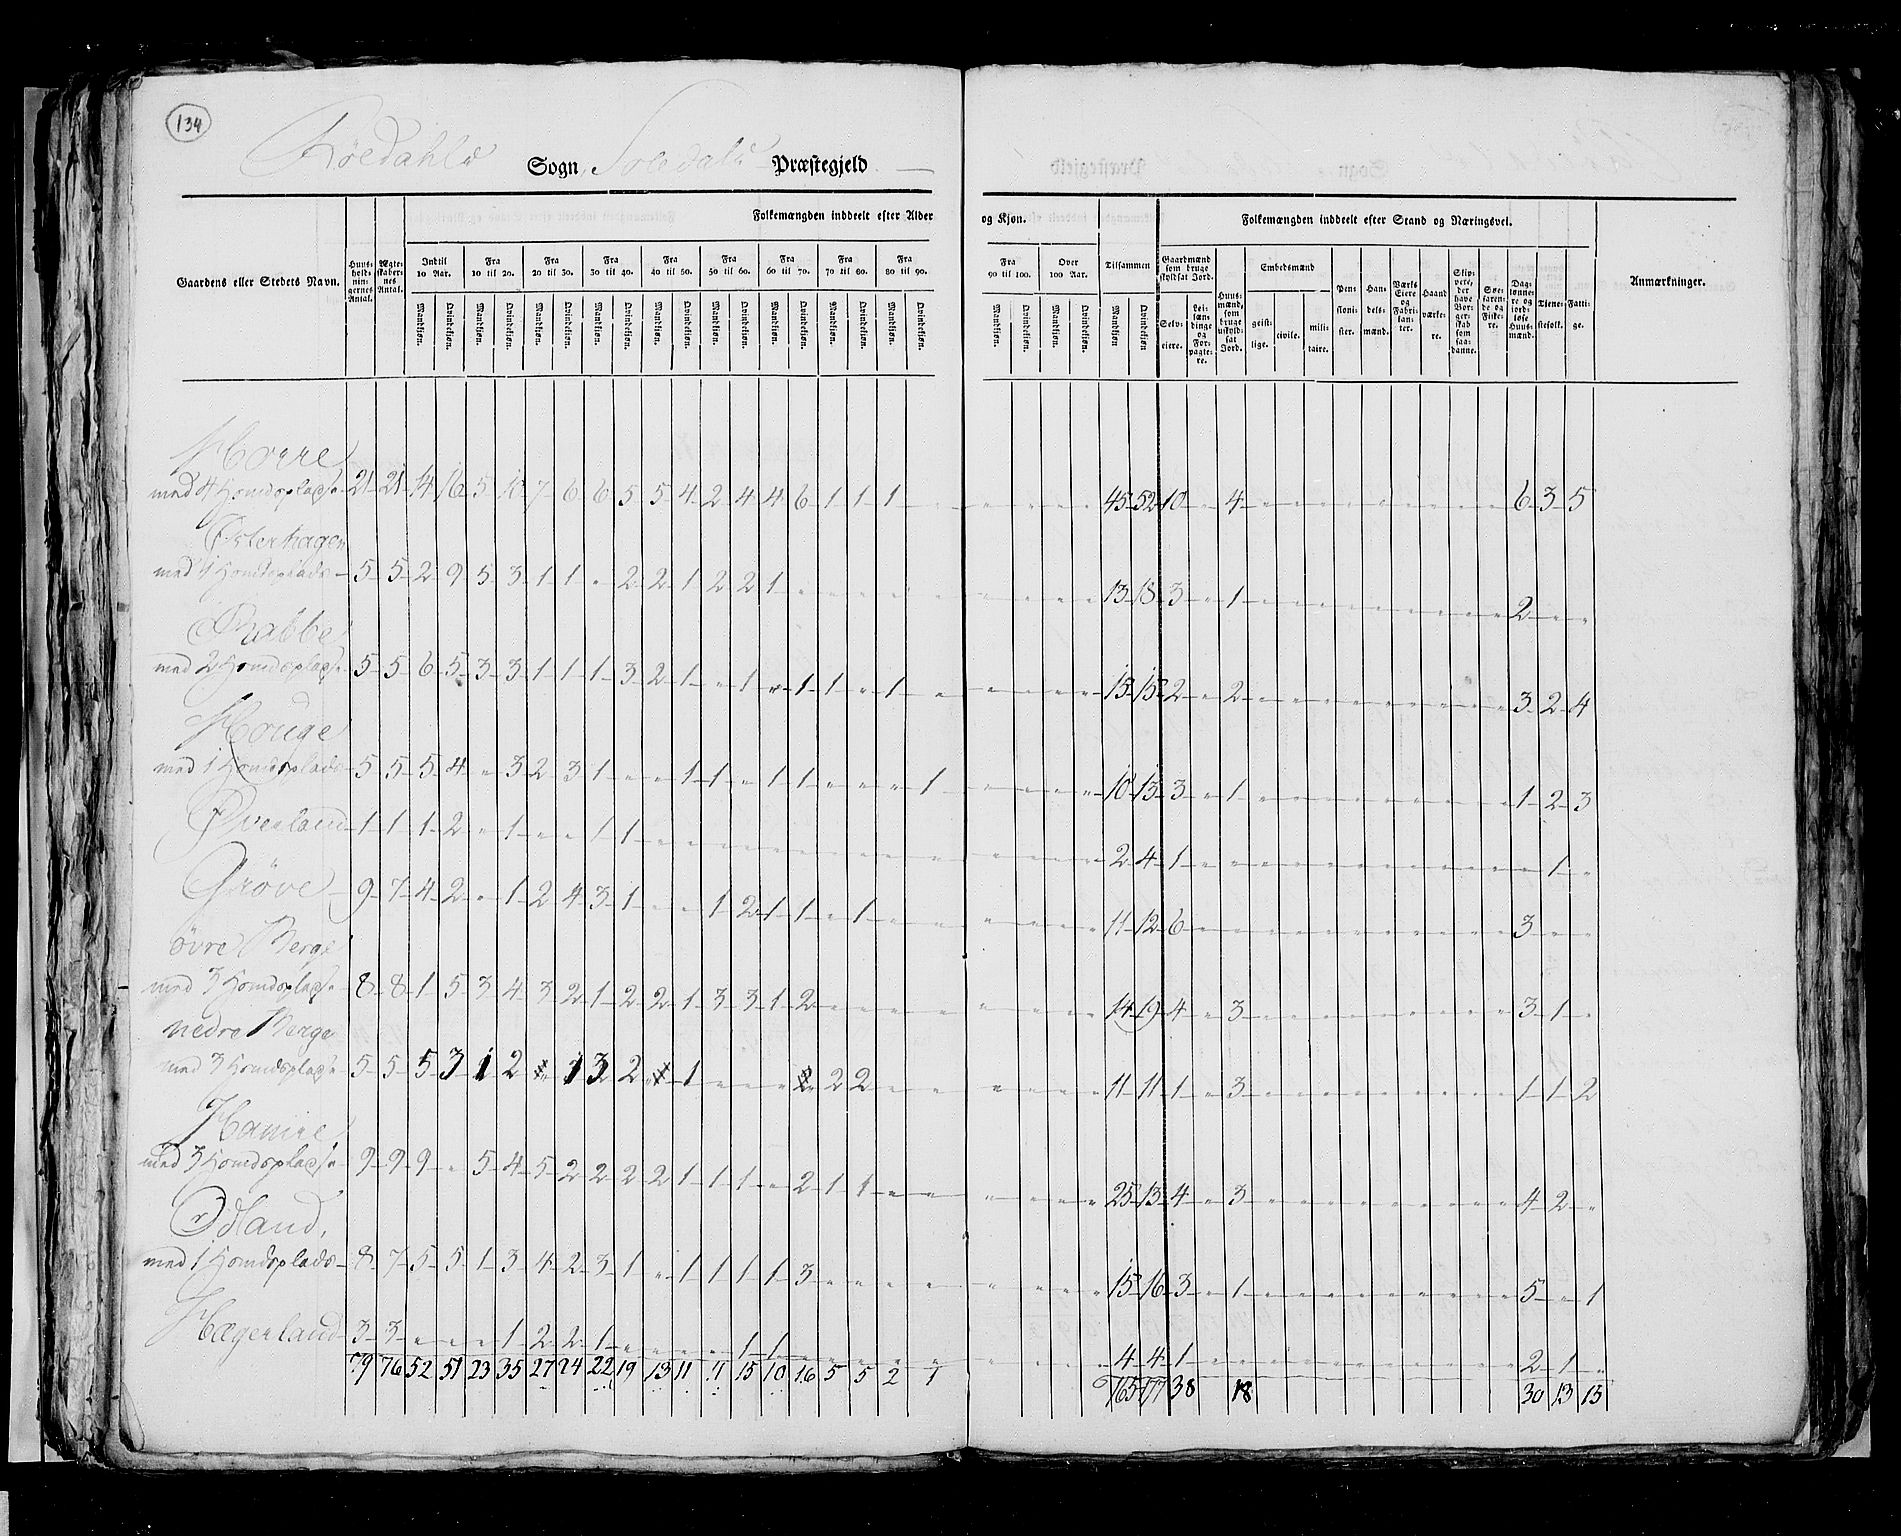 134
Röedahls Sogn Soledals Præstegjeld
Folkemængden inddeelt efter Alder og Kjøn.
Folkemængden inddeelt efter Stand og Næringsvei.
Gaardens eller Stedets Navn.
Huus-hold-nin-gernes Antal.
Ægte-skaber-nes Antal.
Indtil 10 Aar.
Fra 10 til 20.
Fra 20 til 30.
Fra 30 til 40.
Fra 40 til 50.
Fra 50 til 60.
Fra 60 til 70.
Fra 70 til 80.
Fra 80 til 90.
Fra 90 til 100.
Over 100 Aar.
Tilsammen
Mandkjøn. Qvindekjøn.
Gaardmænd som bruge skyldsat Jord.
Selv-eiere.
Lei-læn-dinge og For-pagte-re.
Huus-mænd, som bruge uskyld-sat Jord.
Embedsmænd
geist-lige. civile. mili-taire.
Pen-sioni-ster.
Han-dels-mænd.
Værks Eiere og Fabri-kan-ter.
Haand-værke-re.
Søe-faren-de og Fiske-re.
Dag-lønne-re og jord-løse Huus-mænd.
Tjene-stefolk.
Fatti-ge.
Anmærkninger.
Horre
med 4 Huusdspladse 21 21 14 16 5 10 7 6 6 5 5 4 2 4 4 6 1 1 1 45 52 10 4 6 3 5
Østerhagen
med 1 Huusdsplads 5 5 2 9 5 3 1 1 " 2 2 1 2 2 1 13 18 3 " 1 2
Rabbe
med 2 Huusdspladse 5 5 6 5 3 3 1 1 1 3 2 1 " 1 " 1 1 " 1 15 15 2 " 2 3 2 4
Houge
med 1 Huusdsplads 5 5 5 4 " 3 2 3 1 " " 1 1 " 1 1 " " " 1 10 13 3 " 1 1 2 3
Øverland 1 1 1 2 " 1 " " 1 1 2 4 1 1
Grøve 9 7 4 2 " 1 2 4 3 1 " " 1 2 1 1 " 1 11 12 6 3
øvre Berge
med 3 Huusdspladse 8 8 1 5 3 4 3 2 1 2 2 1 3 3 1 2 14 19 4 " 3 3 1
nedre Berge
med 3 Huusdspladse 5 5 5 3 1 2 " 1 3 2 " 1 " " " " 2 2 11 11 1 " 3 1 1 2
Hamre
med 3 Huusdspladse 9 9 9 " 5 4 5 2 2 2 2 1 1 1 " 2 1 1 25 13 4 " 3 4 2
Odland,
med 1 Huusdsplads 8 7 5 5 1 3 4 2 3 1 " 1 1 1 1 3 15 16 3 " 1 5 " 1
Hægerland 3 3 " " " 1 2 2 1 " " " " 1 1 4 4 1 2 1
79 76 52 51 23 35 27 24 22 19 13 11 11 15 10 16 5 5 2 1 165 177 38 18 30 13 15